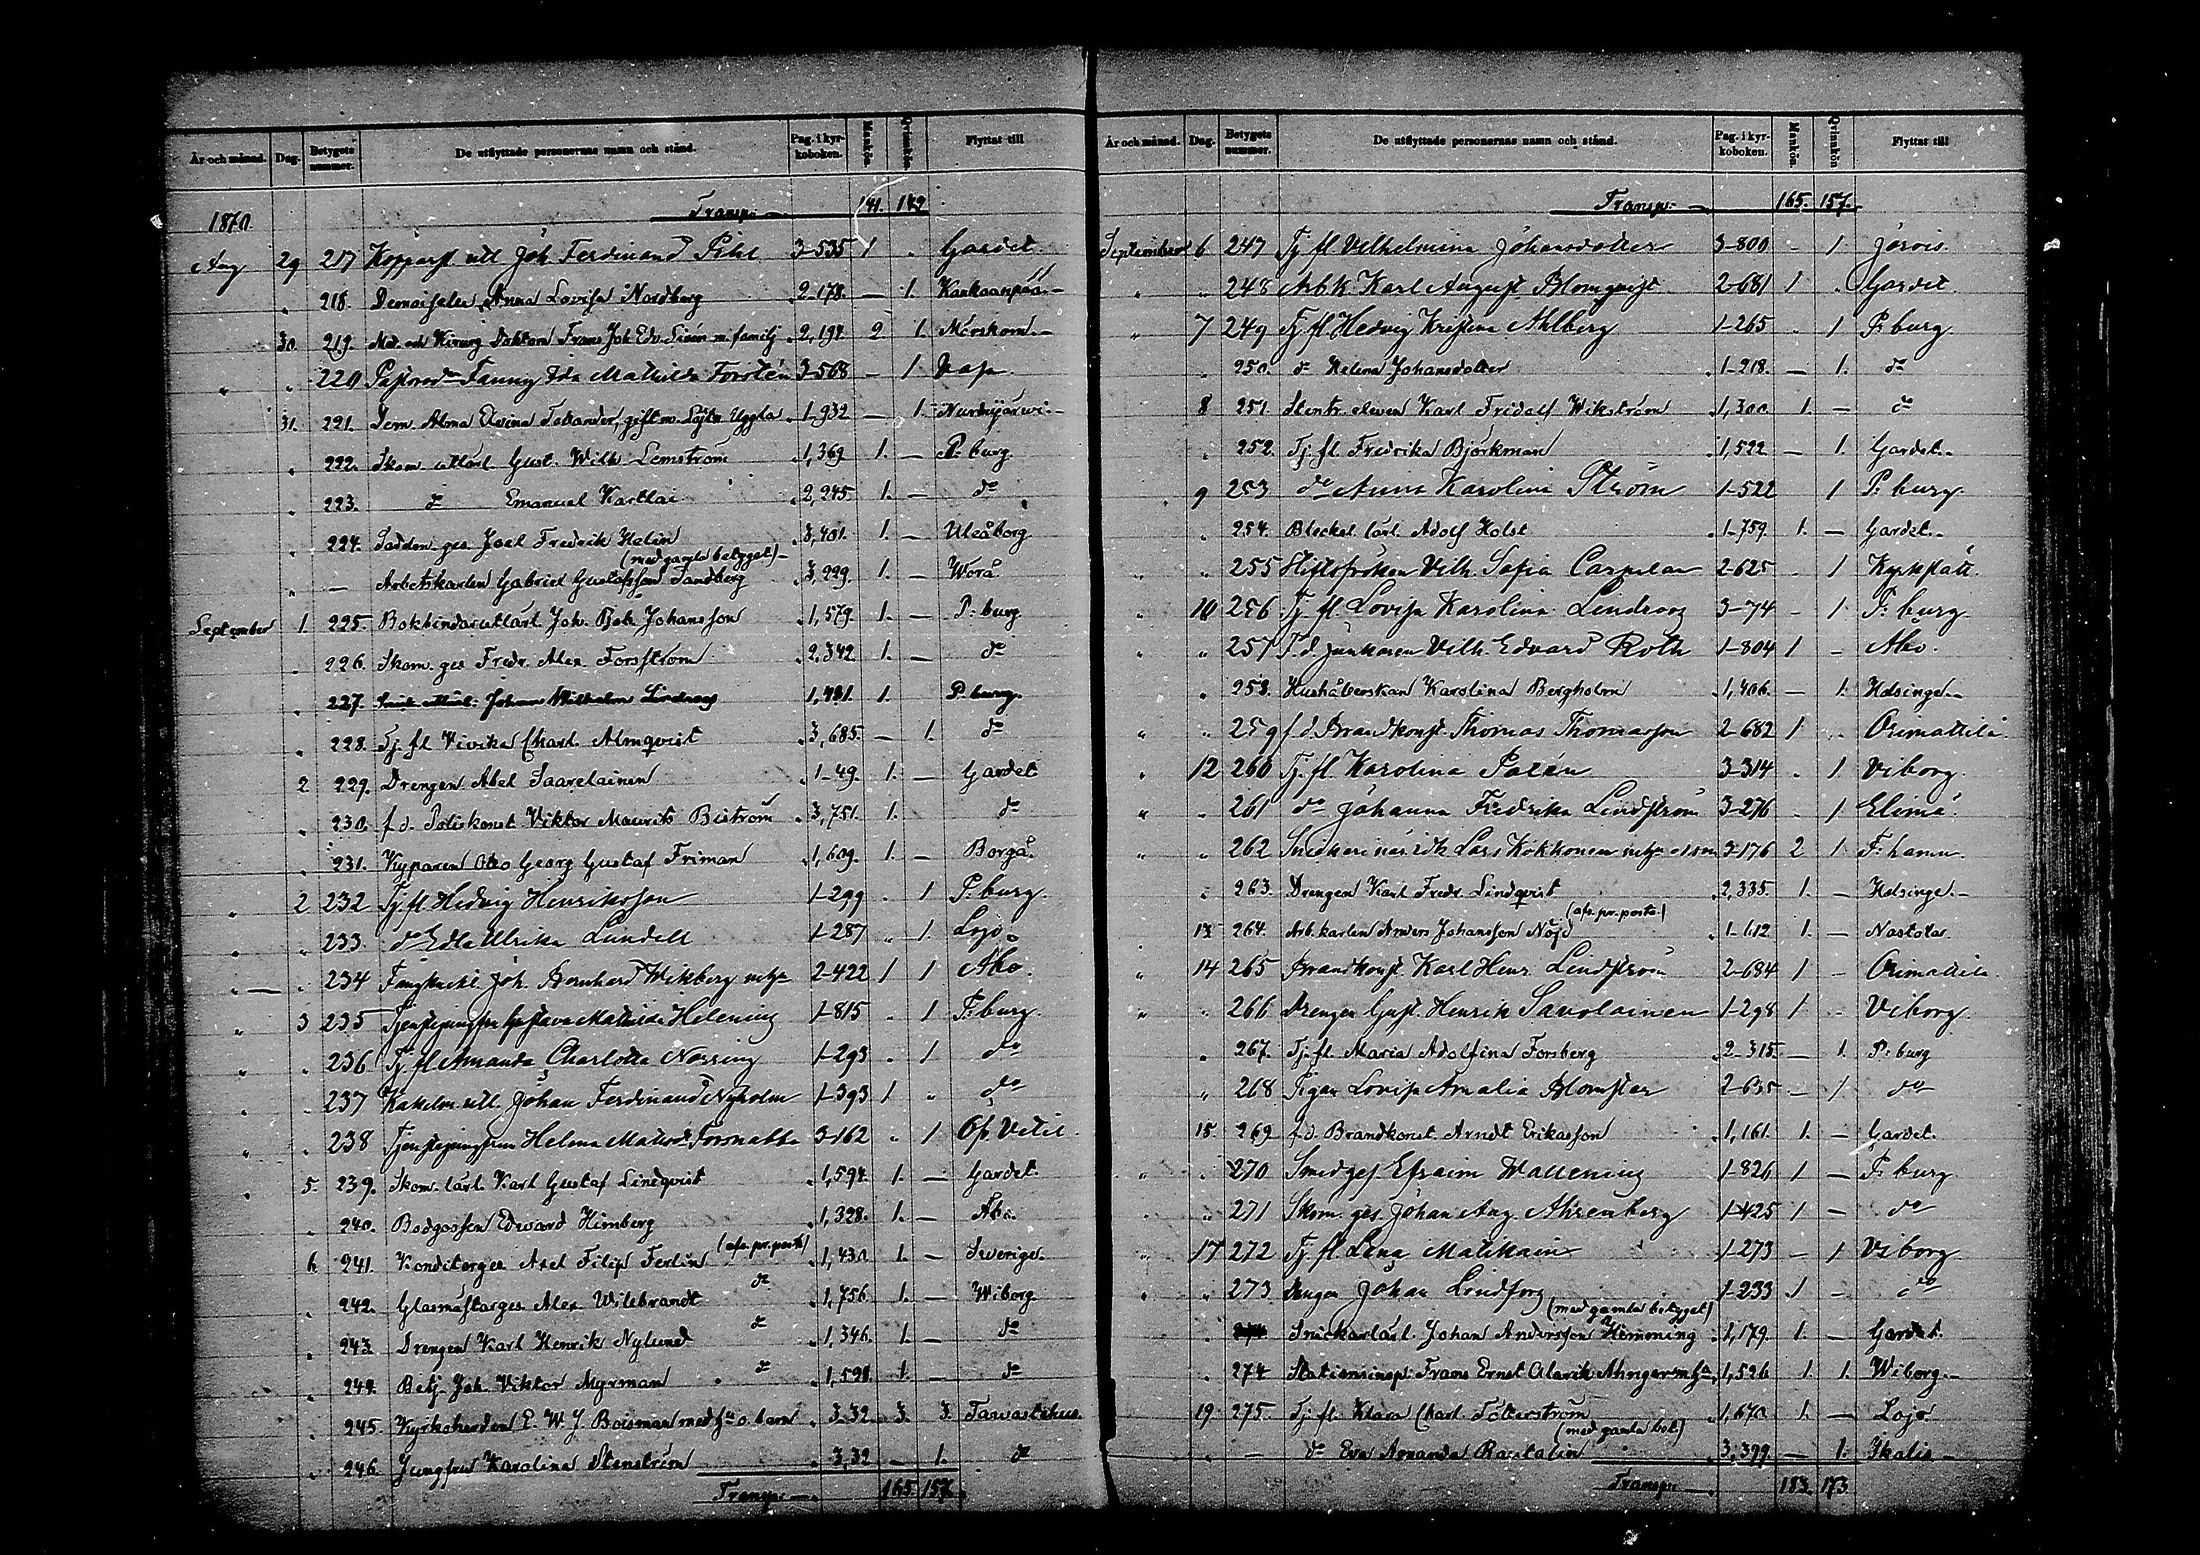 År och månad. Dag. Betygets nummer. De utflyttade personernas namn och stånd. Pag. i kyrkoboken. Mankön Qvinkön Flyttat till
1870. Transp: 141. 142
Aug 29 217 Kopparsl. utl. Joh. Ferdinand Pihl 3-535 1 Gardet.
" 218. Demoiselle Anna Lovisa Nordberg 2-178. — 1. Kankaanpää.
30 219. Med. och Kirurg Doktorn Frans Joh. Edv. Sirén m. familj 2,194. 2. 1. Mörskom.
" " 220 Fanny Ida Mathilda Forstén 3-568 — 1 Vasa.
31. 221. Dem. Alma Elvina Tollander, gift m. Löjtn Uggla 1-932 — 1. Nurmijärvi.
" 222. Skom. utlärl Gust. Wilh. Lemström 1,369. 1. — P:burg.
" 223. do Emanuel Karttai 2,245. 1. — do
" 224. Joel Fredrik Helin 3,401. 1. — Uleåborg
(med gamla betyget)
" — Arbetskarlen Gabriel Gustafsson Sandberg 3,229. 1. — Wörå
September 1. 225. Bokbindareutlärl. Joh. Johansson 1,579. 1. — P:burg
" 226. Skom. ges Fredr. Alex. Forsström 2,342. 1. — do
" 227. Johan Wilhelm Lindroos 1,431. 1. P:burg.
" 228. Tj. fl Vivika Charl. Almqvist 3,685. — 1. do
2 229. Drengen Abel Saarelainen 1-49. 1. — Gardet
" 230. f. d. Poliskonst Viktor Maurits Biström 3,751. 1. do
" 231. Kyparen Otto Georg Gustaf Friman 1,609. 1. — Borgå.
" 2 232 Tj. fl Hedvig Henriksson 1-299 " 1 P:burg.
" " 233. do Edla Ulrika Lundell 1-287 " 1. Lojo
" " 234 Joh. Bernhard Wikberg m hu 2-422 1 1 Åbo.
" 3 235 Gustava Matilda Helenius 1-815 " 1 P:burg.
" " 236 Tj. fl Amanda Charlotta Norring 1-293 " 1 do
" " 237 Johan Ferdinand Nyholm 1-393 1 " do
" " 238 Helena Matild. Tornabba 3-162 " 1 Öf. Vetil
" 5. 239. Skom. lärl. Karl Gustaf Lindqvist 1,594. 1. — Gardet.
" 240. Bodgossen Edvard Himberg 1,328. 1. — Åbo.
6 241. Konditorges Axel Filip Ferlin (afs. pr. post) 1,430 1. — Sverige.
" 242. Glasmästarges Alex Wilebrandt do 1,756 1. — Wiborg
" 243. Drengen Karl Henrik Nylund do 1,346. 1. — do
" 244. Betj. Joh. Viktor Myrman do 1,521. 1. — do
" 245. Kyrkoherden E. W. J. Boisman med hu o. barn 3-32 3. 3. Tavastehus.
" 246. Jungfru Karolina Stenström 3,32 — 1. do
Transp: 165. 157.
År och månad. Dag. Betygets nummer. De utflyttade personernas namn och stånd. Pag. i kyrkoboken. Mankön Qvinkön Flyttat till
Transp: 165. 157.
September 6 247 Tj. fl Vilhelmina Johansdotter 3-800 — 1 Jorois.
" " 248 Arbk. Karl August Blomqvist 2-681 1 " Gardet.
" 7 249 Tj. fl Hedvig Kristina Ahlberg 1-265 " 1 P:burg
" 250. do Helena Johansdotter 1-218. — 1. do
8 251. eleven Karl Fridolf Wikström 1,300. 1. — do
" 252. Tj. fl. Fredrika Björkman 1,522 — 1. Gardet.
" 9 253 do Anna Karolina Ström 1-522 1 P:burg.
" 254. Blecksl. lärl. Adolf Holst 1-759. 1. — Gardet.
" " 255 Stiftsfröken Vilh. Sofia Carpelan 2-625 " 1 Kyrkslätt.
" 10 256 Tj. fl. Lovisa Karolina Lindroos 3-74 — 1 P:burg.
" " 257 F. d. Vilh. Edvard Roth 1-804 1 — Åbo.
" 258. Hushållerskan Karolina Bergholm 1,406. — 1. Helsinge.
" " 259 f. d. Brandkonst. Thomas Thomasson 2-682 1 " Orimattila.
" 12 260 Tj. fl. Karolina Palén 3-314 " 1 Viborg.
" " 261 do Johanna Fredrika Lindström 3-276 " 1 Elimä.
" " 262 Lars Kokkonen m hu o son 3-176 2 1 F:hamn.
" 263. Drengen Karl Fredr. Lindqvist 2,335. 1. — Helsinge.
(afs. pr. posto)
13. 264. Arb. karlen Anders Johansson Nöjd 1-612 1. — Nastola
" 14 265 Brandkonst. Karl Henr. Lindström 2-684 1 — Orimattila
" " 266 Drengen Gust. Henrik Savolainen 1-298 1 " Viborg.
" 267. Tj. fl. Maria Adolfina Forsberg 2-315. — 1. P:burg
" 268 Lovisa Amalia Blomster 2-635 — 1 do
15. 269. f. d. Brandkonst. Arndt Eriksson 1,161. 1. — Gardet.
" " 270 Smedges. Efraim Wallenius 1-826 1 — P:burg
" 271 Skom. ges. Johan Aug. Ahrenberg 1-425 1 — do
" 17 272 Tj. fl. Lena Matikain 1-273 — 1 Viborg.
" " 273 Drengen Johan Lindfors 1-233 1 — do
(med gamla betyget)
" Snickarlärl. Johan Andersson Hemming 1,179. 1. — Gardet.
" 274 Stationsinsp. Frans Ernst Alarik Ahnger m hu 1,526 1. 1. Wiborg.
19. 275. Tj. fl. Klara Charl. Töterström 1,670. 1. — Lojo
(med gamla bet.)
" — do Eva Amanda Rastalin 3,399. — 1. Ikalis
Transp: 183. 173.